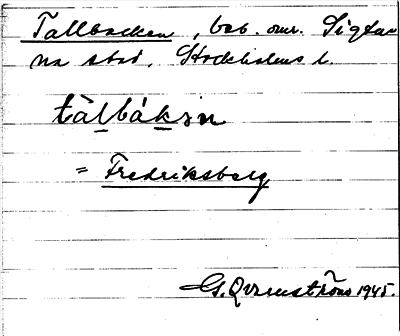 Tallbacken, beb. omr. Sigtu-
na stad, Stockholms l.
tàlbákən
= Fredriksberg
G. Qvarnström 1945.